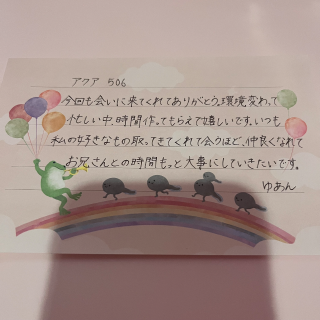 アクア 506
今回も会いに来てくれてありがとう。環境変わって
忙しい中、時間作ってもらえて嬉しいです。いつも
私の好きなもの取ってきてくれて会うほど、仲良くなれて
お兄さんとの時間もっと大事にしていきたいです。
ゆあん